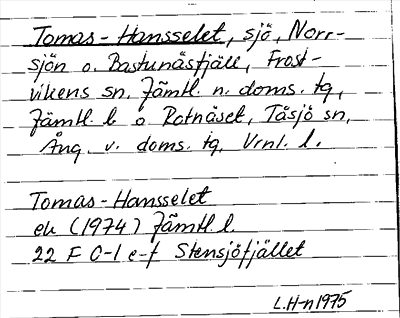 Tomas-Hansselet, sjö, Norr-
sjön o. Bastunäsfjäll, Frost-
vikens sn, Jämtl. n. doms. tg,
Jämtl. l. o Rotnäset, Tåsjö sn,
Ång. v. doms. tg, Vrnl. l.
Tomas-Hansselet
ek (1974) Jämtl. l.
22 F 0-1 e-f Stensjöfjället
L.H-n 1975